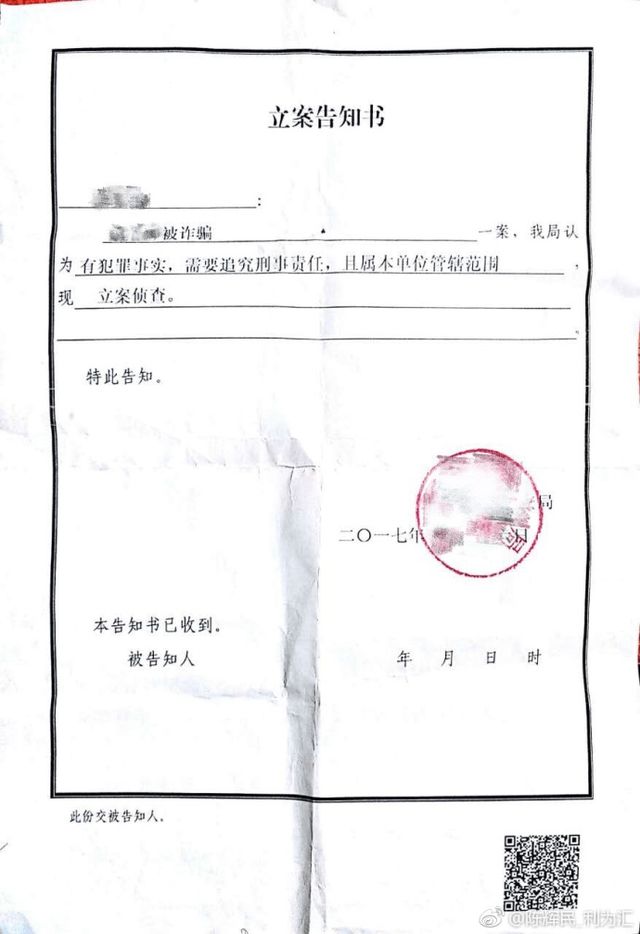 立案告知书
:
被诈骗 一案、我局认
为 有犯罪事实，需要追究刑事责任，且属本单位管辖范围，
现 立案侦查。
。
特此告知。
局
二〇一七年 日
本告知书已收到。
被告知人 年 月 日 时
此份交被告知人。
@陈辉民_利为汇